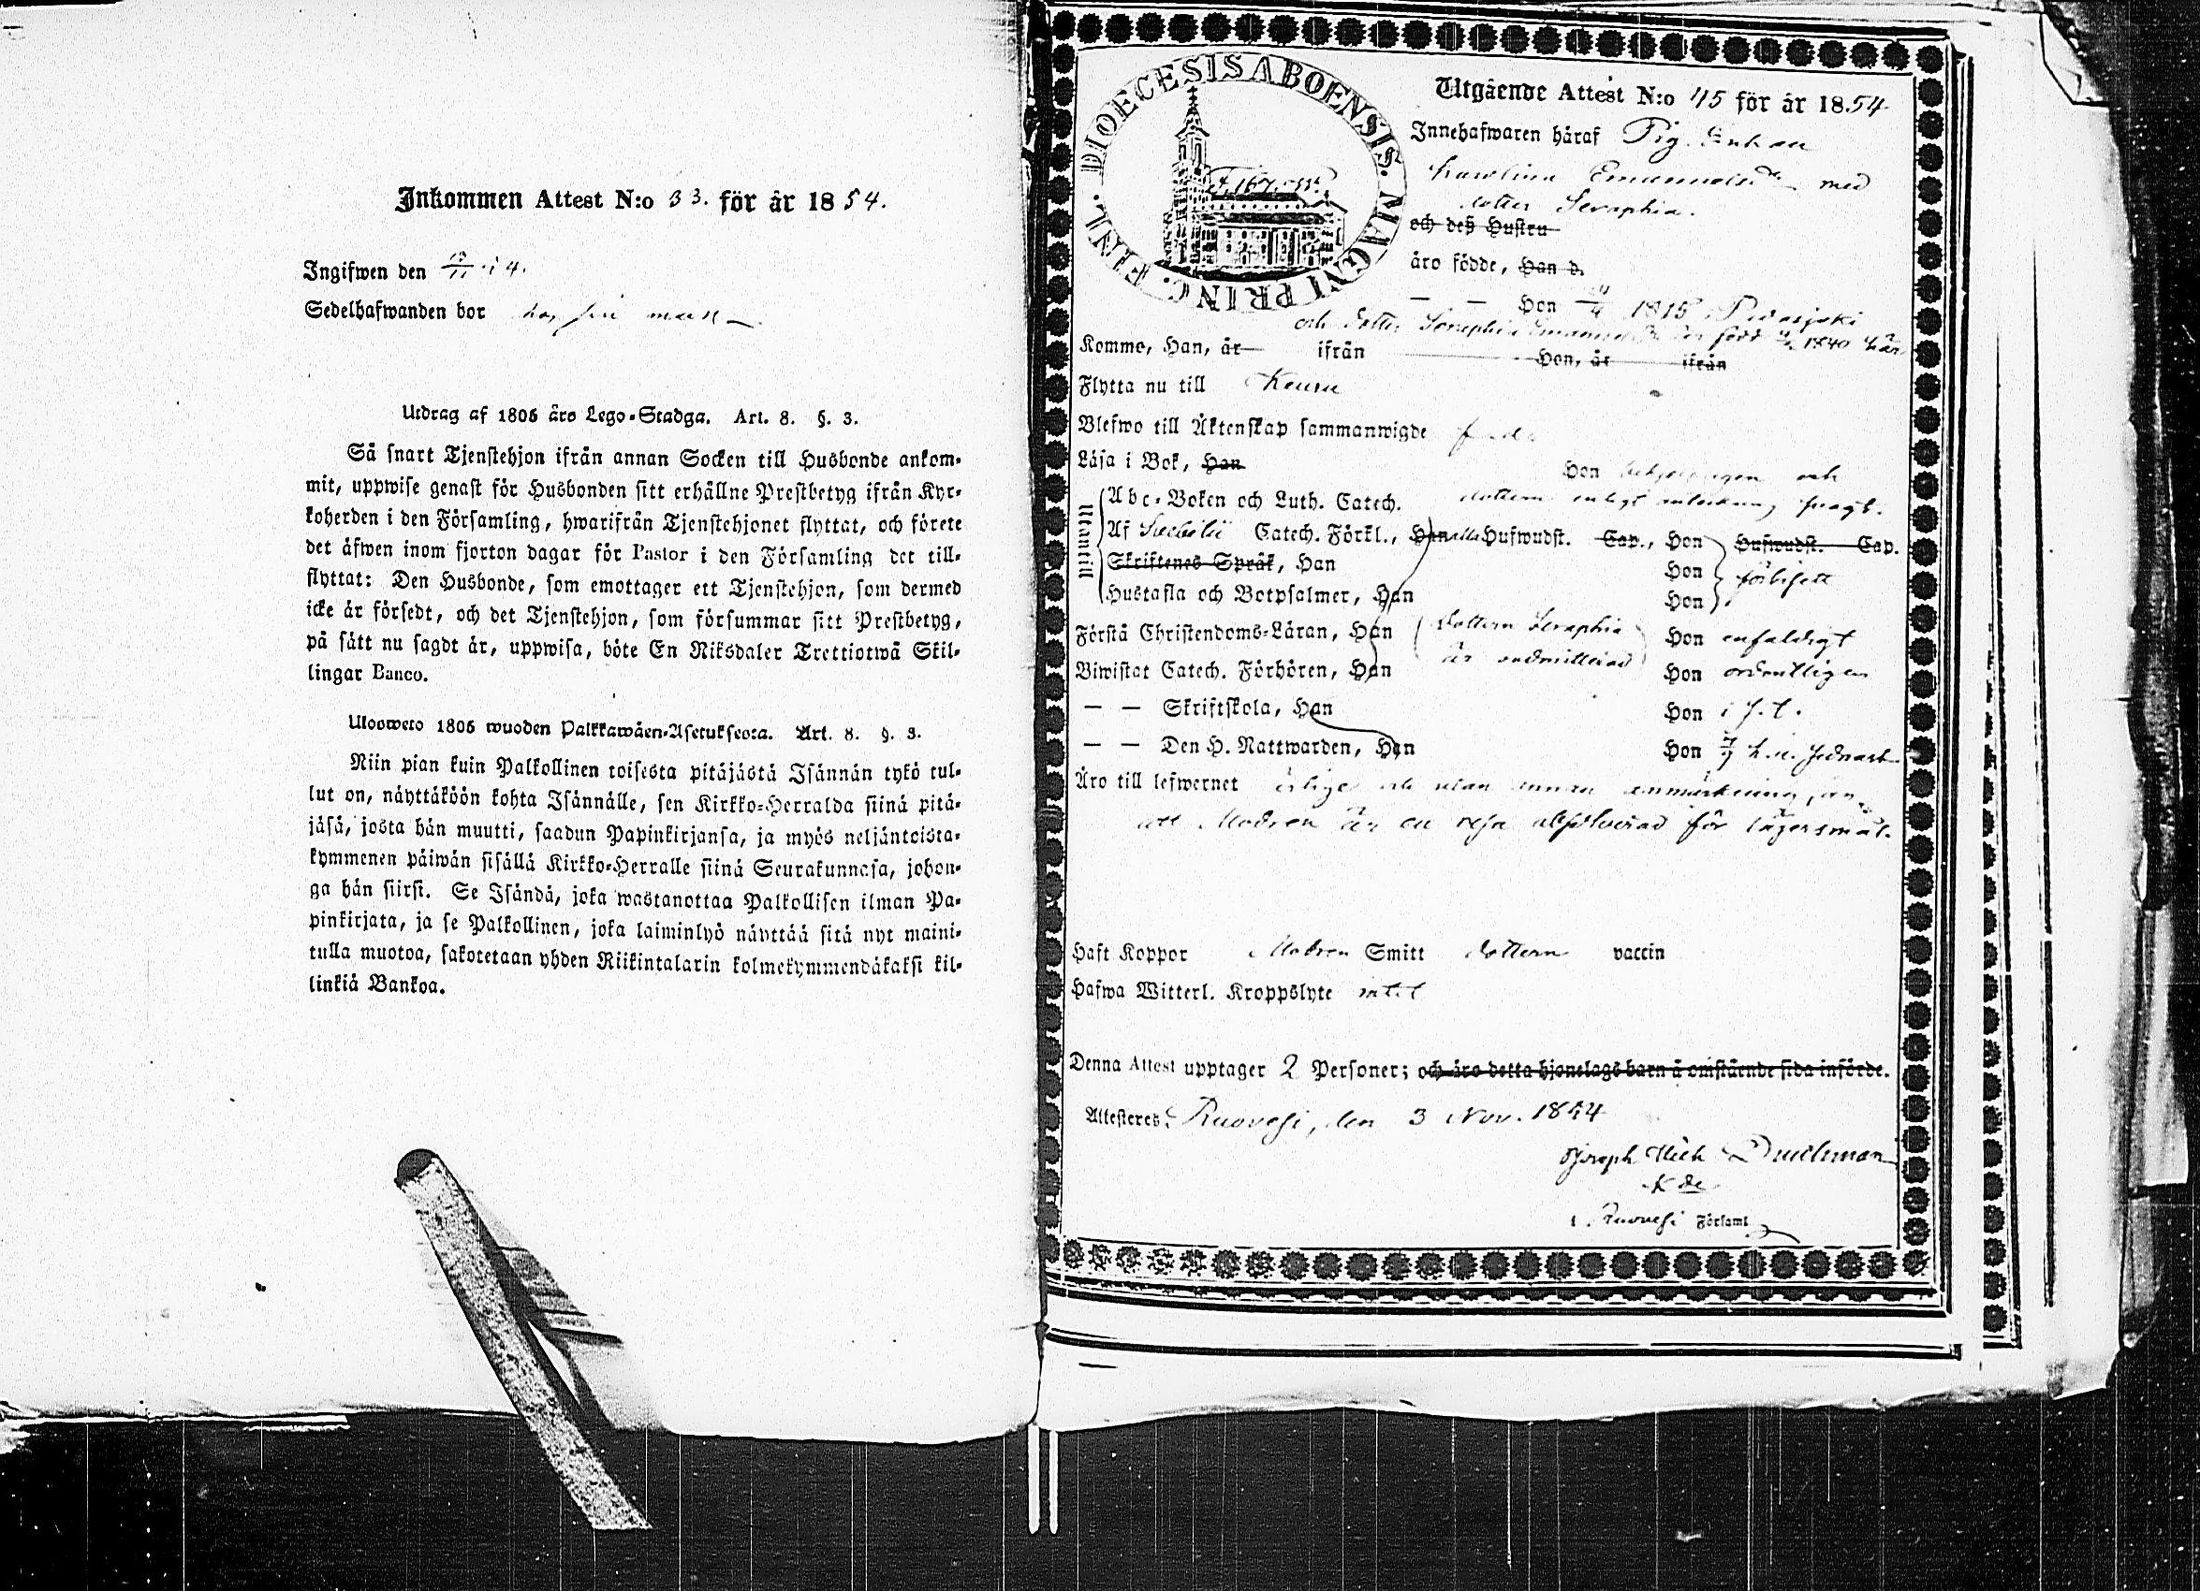 Inkommen Attest N:o 33. för år 1854.
Ingifwen den
Sedelhafwanden bor hos sin
Utdrag af 1805 års Lego-Stadga. Art. 8. §. 3.
Så snart Tjenstehjon ifrån annan Socken till Husbonde ankom-
mit, uppwise genast för Husbonden sitt erhållne Prestbetyg ifrån Kyr-
koherden i den Församling, hwarifrån Tjenstehjonet flyttat, och förete
det äfwen inom fjorton dagar för Pastor i den Församling det till-
flyttat: Den Husbonde, som emottager ett Tjenstehjon, som dermed
icke är försedt, och det Tjenstehjon, som försummar sitt Prestbetyg,
på sätt nu sagdt är, uppwisa, böte En Riksdaler Trettiotwå Skil-
lingar Banco.
Ulosweto 1805 wuoden Palkkawäen-Asetuksesta. Art. 8. §. 3.
Niin pian kuin Palkollinen toisesta pitäjästä Isännän tykö tul-
lut on, näyttäköön kohta Isännälle, sen Kirkko-Herralda siinä pitä-
jäsä, josta hän muutti, saadun Papinkirjansa, ja myös neljäntoista-
kymmenen päiwän sisällä Kirkko-Herralle siinä Seurakunnasa, johon-
ga hän siirsi. Se Isändä, joka wastanottaa Palkollisen ilman Pa-
pinkirjata, ja se Palkollinen, joka laiminlyö näyttää sitä nyt maini-
tulla muotoa, sakotetaan yhden Riikintalarin kolmekymmendäkaksi kil-
linkiä Bankoa.
DIOECESIS ABOENSIS. MAGNI PRINC. FINL.
Utgående Attest N:o 45 för år 1854
Innehafwaren häraf Pig. Enkan
Karolina Emanuelsdr med
dotter Seraphia.
och deß Hustru
äro födde, Han d.
— — Hon 1815
och dotter Seraphia född 1840 här
Komme, Han, år ifrån Hon, år ifrån
Flytta nu till Keuru
Blefwo till Äktenskap sammanwigde
Läsa i Bok, Han Hon och
dottern enligt
Utantill
Abc-Boken och Luth. Catech.
Af Swebilii Catech. Förkl., Han alla Hufwudst. Cap., Hon Hufwudst. Cap.
Skriftenes Språk, Han Hon förbisett
Hustafla och Botpsalmer, Han Hon
Förstå Christendoms-Läran, Han dottern Seraphia Hon enfaldigt
Biwistat Catech. Förhören, Han är oadmitterad Hon ordentligen
— — Skriftskola, Han Hon i s. t.
— — Den H. Nattwarden, Han Hon
Äro till lefwernet ärlige och utan annan anmärkning, än
att Modren är en resa absolverad för lägersmål.
Haft Koppor Modren Smitt dottern vaccin
Hafwa Witterl. Kroppslyte intet
Denna Attest upptager 2 Personer; och äro detta hjonelags barn å omstående sida införde.
Attesteres: Ruovesi, den 3 Nov. 1854
Joseph Mich
Kde
i Ruovesi Församl